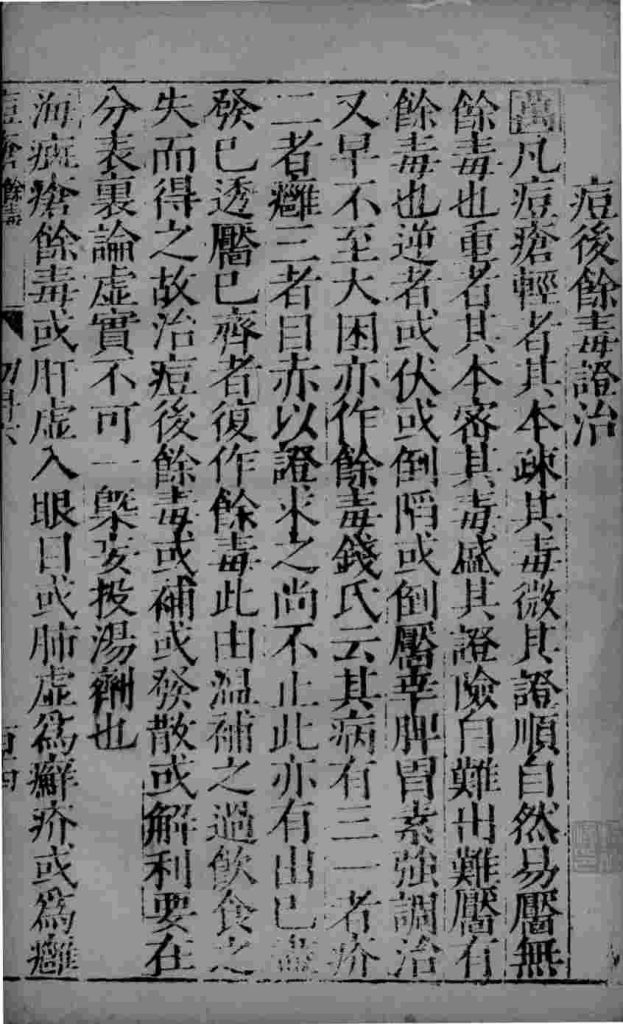 痘後餘毒證治
萬凡痘瘡輕者其本疎其毒微其證順自然易靨無
餘毒也重者其本密其毒盛其證險自難出難靨有
餘毒也逆者或伏或倒陷或倒靨幸脾胃素強調治
又早不至大困亦作餘毒錢氏云其病有三一者疥
二者癰三者目赤以證求之尚不止此亦有出已盡
發已透靨已齊者復作餘毒此由溫補之過飲食之
失而得之故治痘後餘毒或補或發散或解利要在
分表裏論虛實不可一槩妄投湯劑也
海斑瘡餘毒或肝虛入眼目或肺虛為癬疥或為癰
痘瘡餘毒